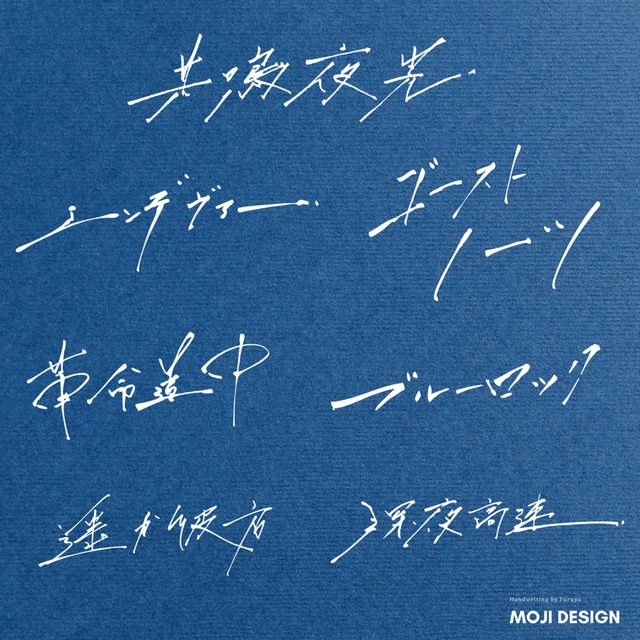 エンデヴァー.
ゴースト
ノーツ
革命道中
ブルーロック
遥か彼方
深夜高速.
Handwriting by Furuya
MOJI DESIGN